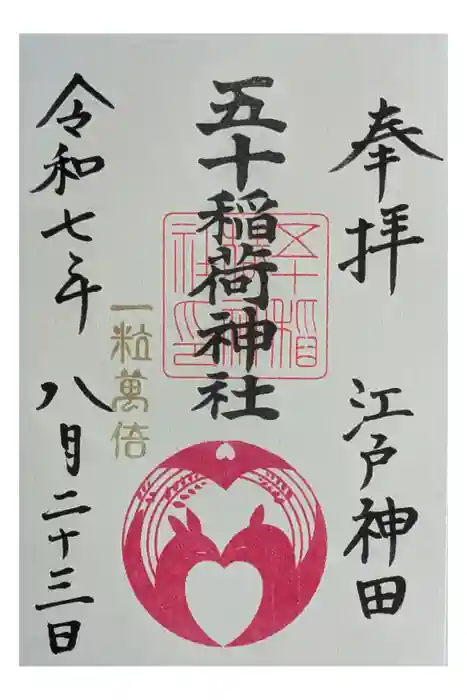 奉拝
江戸神田
五十稲荷神社
一粒萬倍
令和七年
八月二十三日